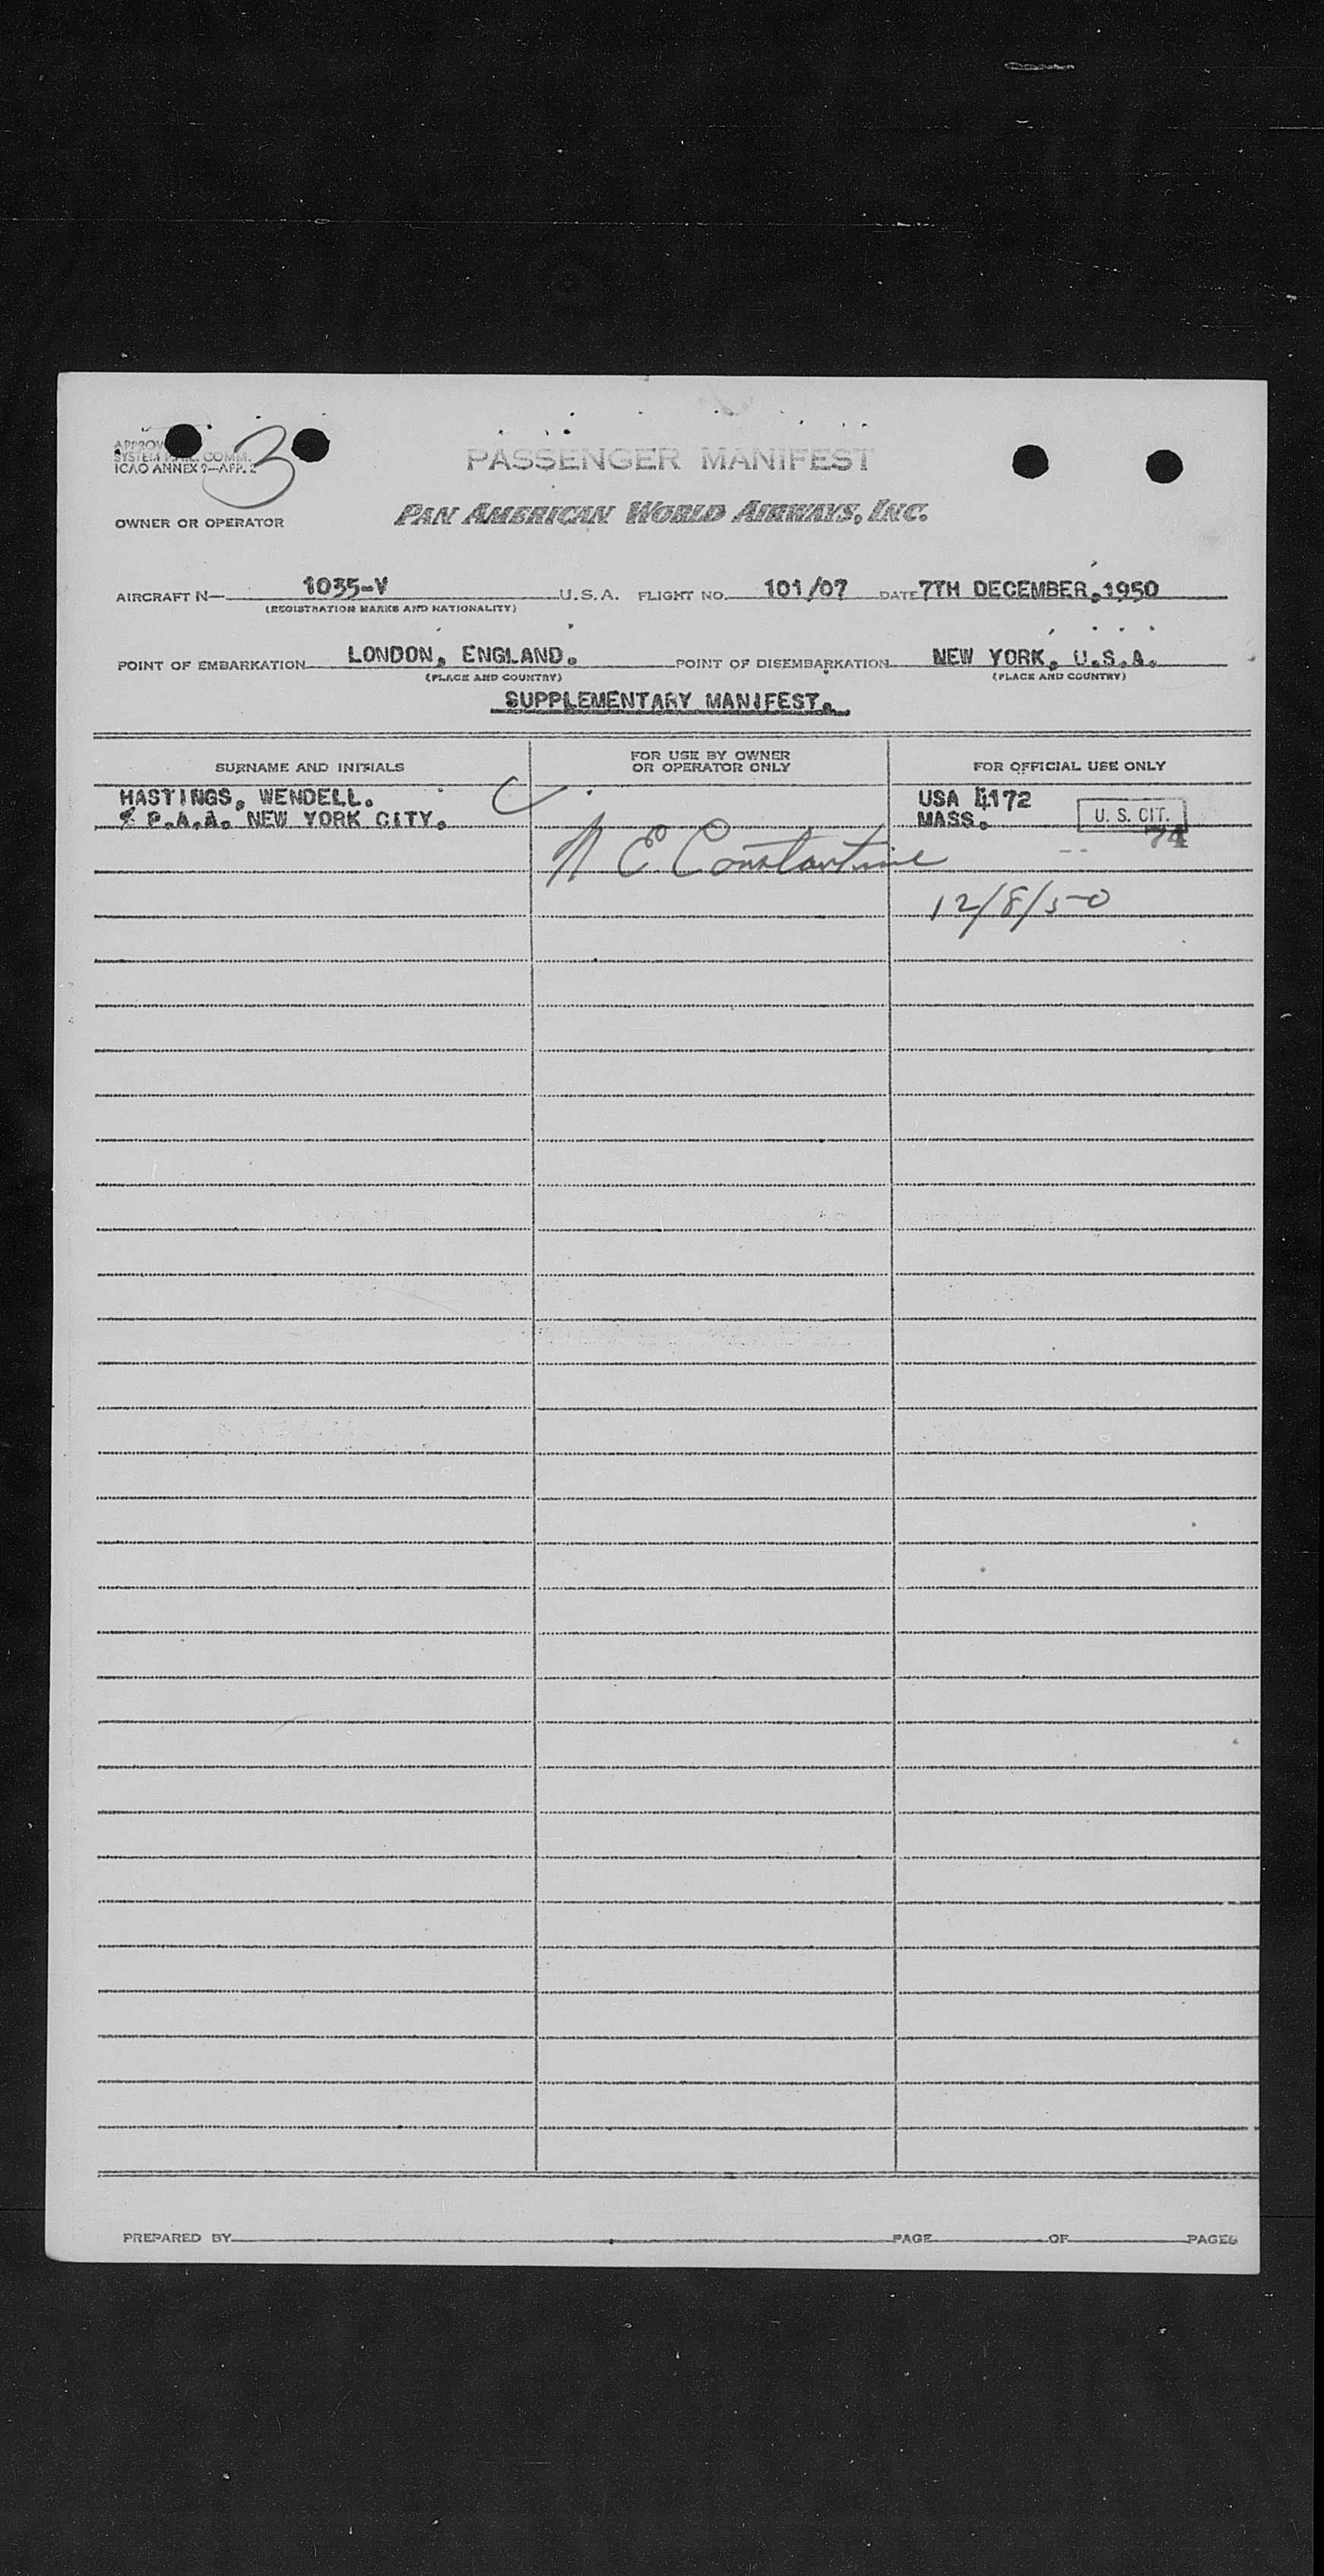 3
APPROV
SYSTEM COMM.
ICAO ANNEX 9—APP. 2
PASSENGER MANIFEST
OWNER OR OPERATOR PAN AMERICAN WORLD AIRWAYS, INC.
AIRCRAFT N— 1035-V U.S.A. FLIGHT NO. 101/07 DATE 7TH DECEMBER, 1950
(REGISTRATION MARKS AND NATIONALITY)
POINT OF EMBARKATION LONDON, ENGLAND. POINT OF DISEMBARKATION NEW YORK, U.S.A.
(PLACE AND COUNTRY) (PLACE AND COUNTRY)
SUPPLEMENTARY MANIFEST.
SURNAME AND INITIALS FOR USE BY OWNER OR OPERATOR ONLY FOR OFFICIAL USE ONLY
HASTINGS, WENDELL. USA 4172
% P.A.A. NEW YORK CITY. MASS. U. S. CIT.
74
E Constantine
12/8/50
PREPARED BY PAGE OF PAGES